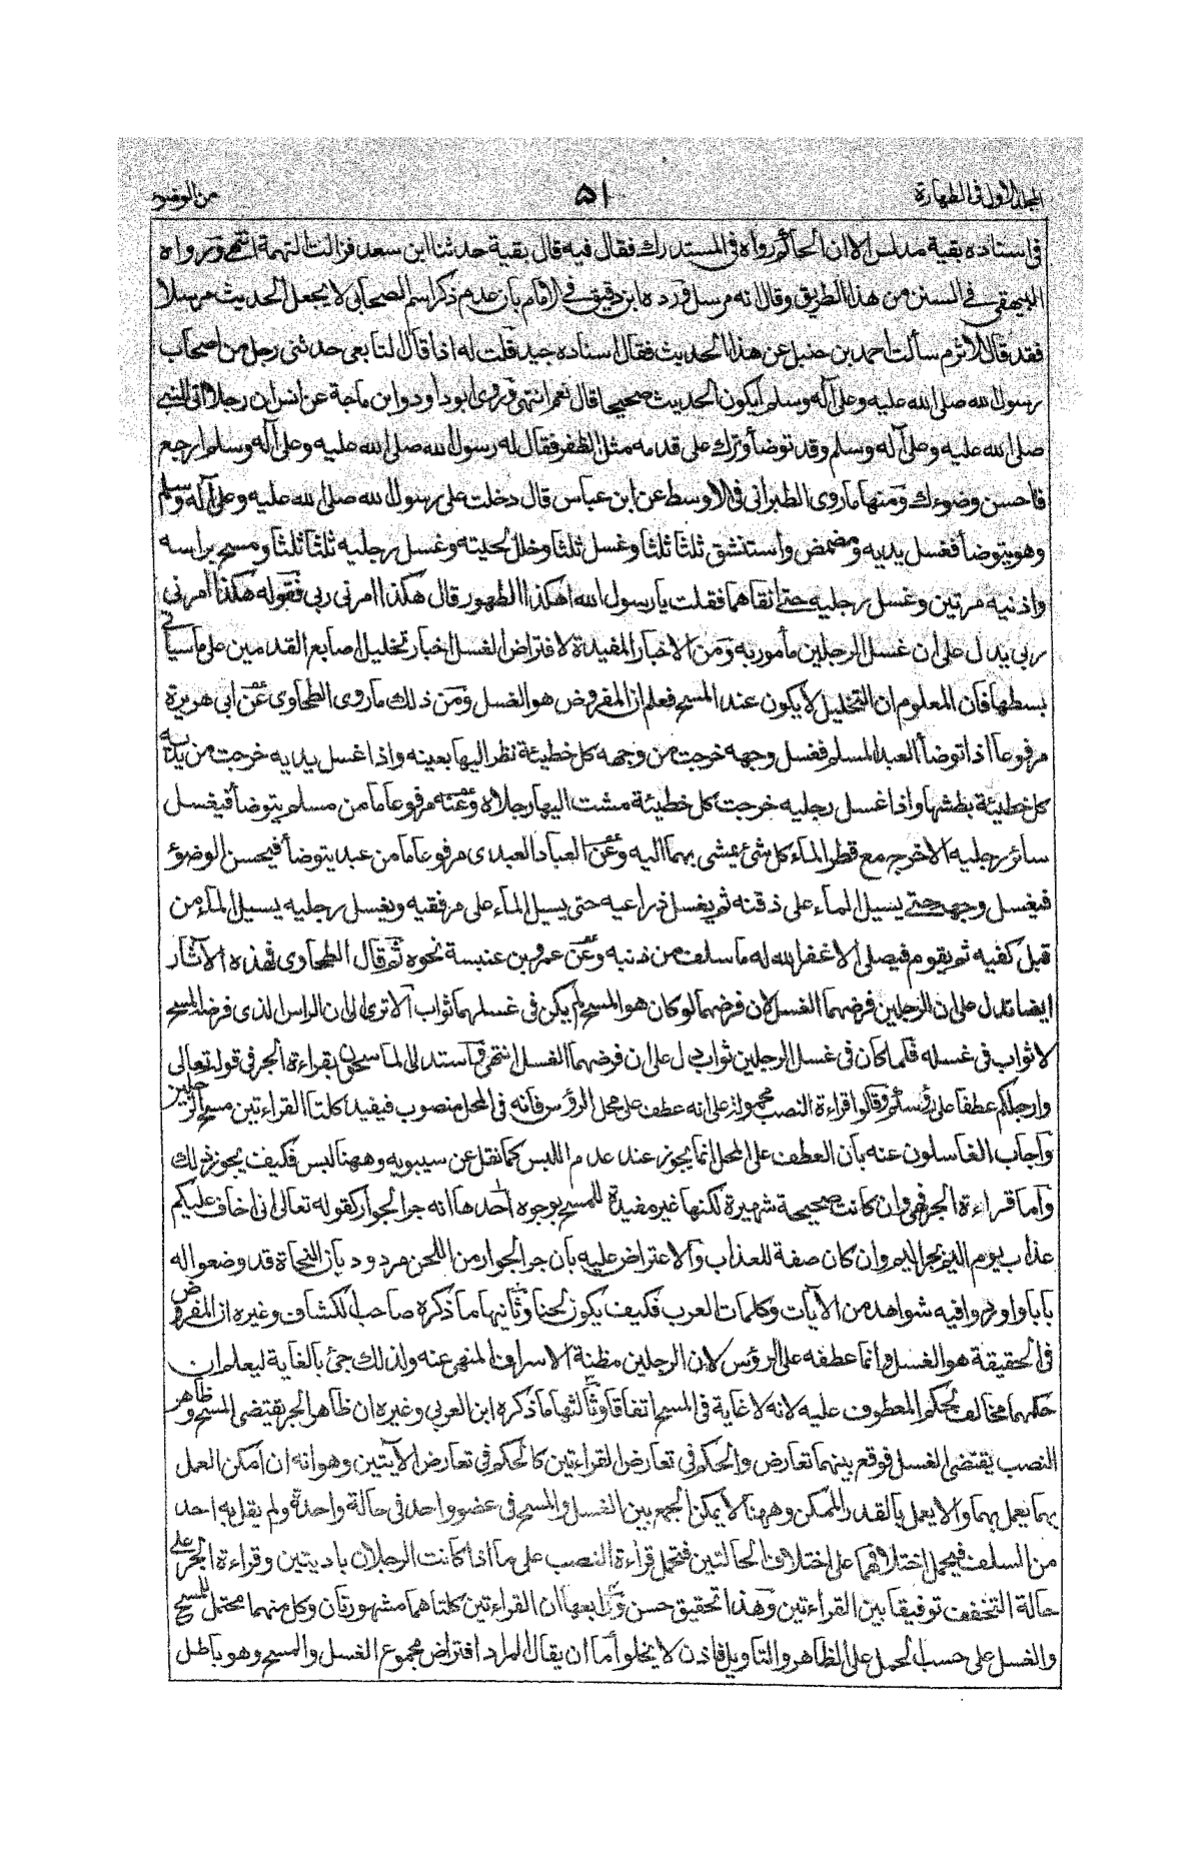 المجلد الاول فى الطهارة
٥١
من الوضوء
فى اسناده بقية مدلس الا ان الحاكم رواه فى المستدرك فقال فيه قال بقية حدثنا ابن سعد فزالت التهمة انتهى ورواه
البيهقى فى السنن من هذا الطريق وقال انه مرسل ورده ابن دقيق فى الامام بان عدم ذكر اسم الصحابى لا يجعل الحديث مرسلا
فقد قال الاثرم سألت احمد بن حنبل عن هذا الحديث فقال اسناده جيد قلت له اذا قال التابعى حدثنى رجل من اصحاب
رسول الله صلى الله عليه وعلى آله وسلم ايكون الحديث صحيحا قال نعم انتهى وروى ابو داود وابن ماجة عن انس ان رجلا اتى النبى
صلى الله عليه وعلى آله وسلم وقد توضأ وترك على قدمه مثل الظفر فقال له رسول الله صلى الله عليه وعلى آله وسلم ارجع
فاحسن وضوءك ومنها ما روى الطبرانى فى الاوسط عن ابن عباس قال دخلت على رسول الله صلى الله عليه وعلى آله وسلم
وهو يتوضأ فغسل يديه ومضمض واستنشق ثلثا ثلثا وغسل ثلثا وخلل لحيته وغسل رجليه ثلثا ثلثا ومسح براسه
واذنيه مرتين وغسل رجليه حتى انقاهما فقلت يا رسول الله اهكذا الطهور قال هكذا امرنى ربى فقوله هكذا امرنى
ربى يدل على ان غسل الرجلين مأمور به ومن الاخبار المفيدة لافتراض الغسل اخبار تخليل اصابع القدمين على ما سياتى
بسطها فان المعلوم ان التخليل لا يكون عند المسح فعلم ان المفروض هو الغسل ومن ذلك ما روى الطحاوى عن ابى هريرة
مرفوعا اذا توضأ العبد المسلم فغسل وجهه خرجت من وجهه كل خطيئة نظر اليها بعينه واذا غسل يديه خرجت من يديه
كل خطيئة بطشها واذا غسل رجليه خرجت كل خطيئة مشت اليها رجلاه وعنه مرفوعا ما من مسلم يتوضأ فيغسل
سائر رجليه الا خرج مع قطر الماء كل شئ يمشى بهما اليه وعن العباد العبدى مرفوعا ما من عبد يتوضأ فيحسن الوضوء
فيغسل وجهه حتى يسيل الماء على ذقنه ثم يغسل ذراعيه حتى يسيل الماء على مرفقيه ويغسل رجليه يسيل الماء من
قبل كفيه ثم يقوم فيصلى الا غفر الله له ما سلف من ذنبه وعن عمرو بن عنبسة نحوه ثم قال الطحاوى فهذه الآثار
ايضا تدل على ان الرجلين فرضهما الغسل لان فرضهما لو كان هو المسح لم يكن فى غسلهما ثواب الا ترى الى ان الراس الذى فرضه المسح
لا ثواب فى غسله فلما كان فى غسل الرجلين ثواب دل على ان فرضهما الغسل انتهى واستدل الماسحون بقراءة الجر فى قوله تعالى
وارجلكم عطفا على رؤسكم وقالوا قراءة النصب محمولة على انه عطف على محل الرؤس فانه فى المحل منصوب فيفيد كلتا القراءتين مسح الرجلين
واجاب الغاسلون عنه بان العطف على المحل انما يجوز عند عدم اللبس كما نقل عن سيبويه وههنا لبس فكيف يجوز ذلك
واما قراءة الجر فهى وان كانت صحيحة شهيرة لكنها غير مفيدة للمسح بوجوه احدها انه جر الجوار كقوله تعالى انى اخاف عليكم
عذاب يوم اليم بجر اليم وان كان صفة للعذاب والاعتراض عليه بان جر الجوار من اللحن مردود بان النحاة قد وضعوا له
بابا واوردوا فيه شواهد من الآيات وكلمات العرب فكيف يكون لحنا وثانيها ما ذكره صاحب الكشاف وغيره ان المفروض
فى الحقيقة هو الغسل وانما عطفه على الرؤس لان الرجلين مظنة الاسراف المنهى عنه ولذلك جئ بالغاية ليعلم ان
حكمهما مخالف لحكم المعطوف عليه لانه لا غاية فى المسح اتفاقا وثالثها ما ذكره ابن العربى وغيره ان ظاهر الجر يقتضى المسح وظاهر
النصب يقتضى الغسل فوقع بينهما تعارض والحكم فى تعارض القراءتين كالحكم فى تعارض الآيتين وهو انه ان امكن العمل
بهما يعمل بهما والا يعمل بالقدر الممكن وههنا لا يمكن الجمع بين الغسل والمسح فى عضو واحد فى حالة واحدة ولم يقل به احد
من السلف فيحمل اختلافهما على اختلاف الحالتين فتحمل قراءة النصب على ما اذا كانت الرجلان باديتين وقراءة الجر على
حالة التخفف توفيقا بين القراءتين وهذا تحقيق حسن ورابعها ان القراءتين كلتاهما مشهورتان وكل منهما محتمل للمسح
والغسل على حسب الحمل على الظاهر والتاويل فاذن لا يخلو اما ان يقال المراد افتراض مجموع الغسل والمسح وهو باطل